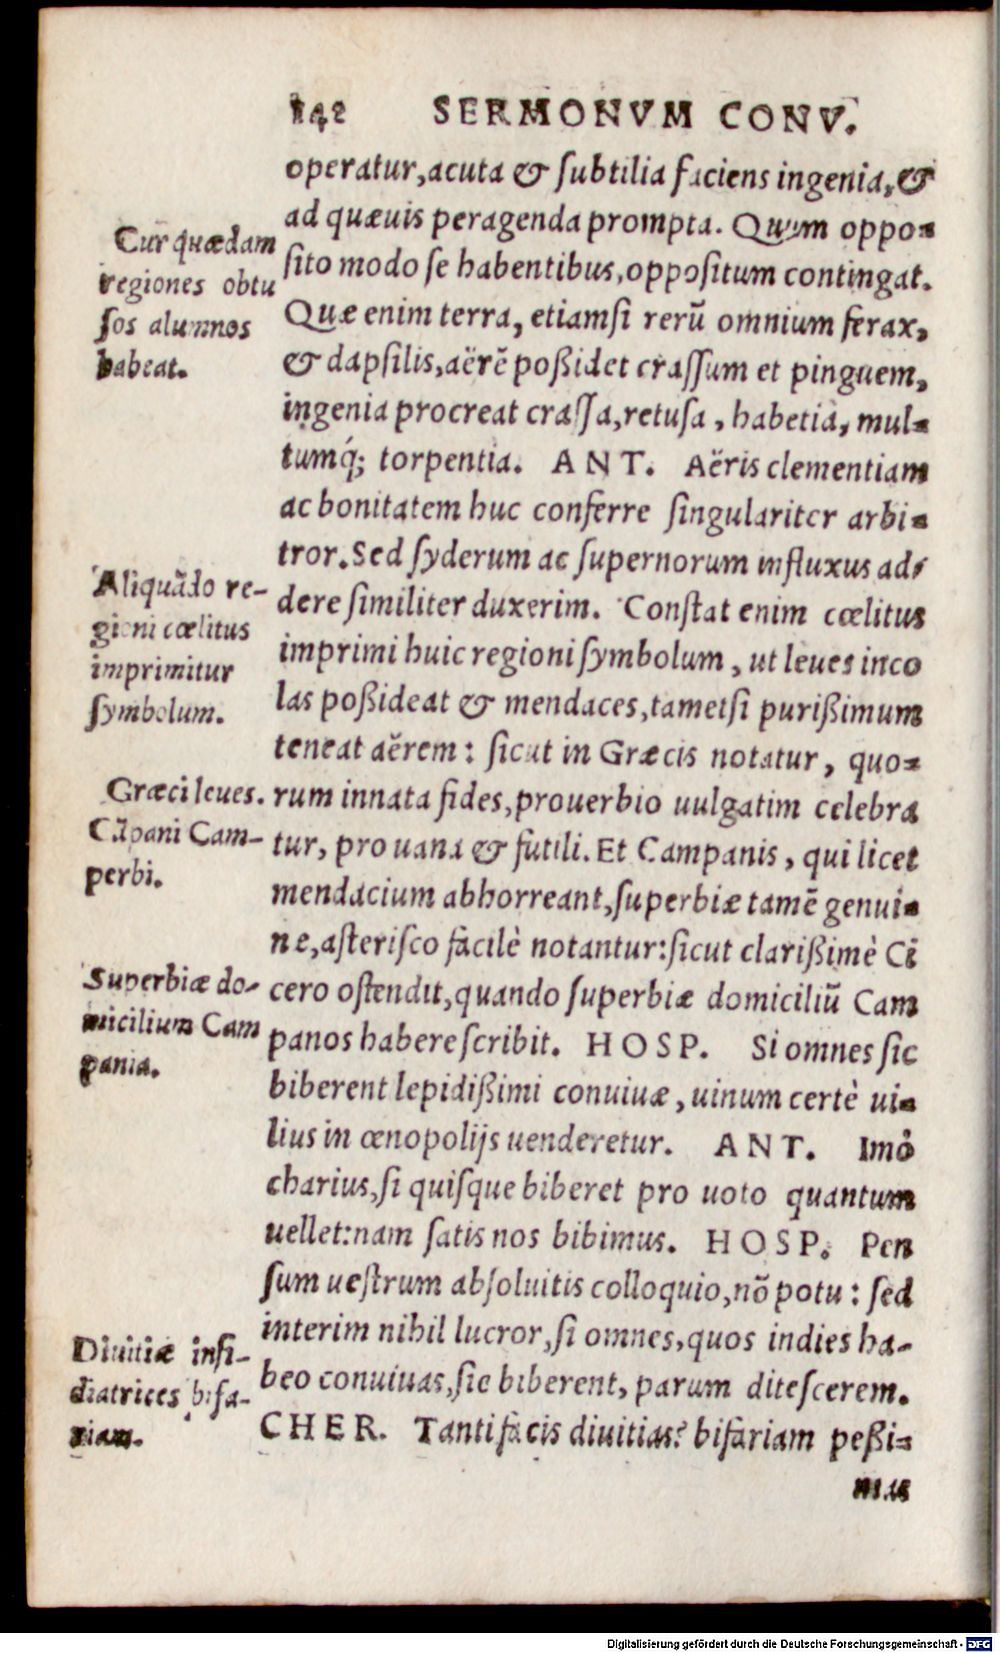 142 SERMONVM CONV.
operatur,acuta & ſubtilia faciens ingenia,&
ad quæuis peragenda prompta. Quum oppo-
ſito modo ſe habentibus,oppoſitum contingat.
Quæ enim terra, etiamſi rerū omnium ferax,
& dapſilis,aërē poßidet craſſum et pinguem,
ingenia procreat craſſa,retuſa, habetia, mul-
tumq́; torpentia. ANT. Aëris clementiam
ac bonitatem huc conferre ſingulariter arbi-
tror.Sed ſyderum ac ſupernorum influxus ad-
dere ſimiliter duxerim. Conſtat enim cœlitus
imprimi huic regioni ſymbolum, ut leues inco
las poßideat & mendaces,tametſi purißimum
teneat aërem: ſicut in Græcis notatur, quo-
rum innata fides,prouerbio uulgatim celebra
tur, pro uana & futili. Et Campanis, qui licet
mendacium abhorreant,ſuperbiæ tamē genui-
ne,aſteriſco facilè notantur:ſicut clarißimè Ci
cero oſtendit,quando ſuperbiæ domiciliū Cam
panos habere ſcribit. HOSP. Si omnes ſic
biberent lepidißimi conuiuæ, uinum certè ui-
lius in œnopolijs uenderetur. ANT. Imò
charius,ſi quiſque biberet pro uoto quantum
uellet:nam ſatis nos bibimus. HOSP. Pen
ſum ueſtrum abſoluitis colloquio,nō potu: ſed
interim nihil lucror,ſi omnes,quos indies ha-
beo conuiuas,ſic biberent, parum diteſcerem.
CHER. Tanti facis diuitias? bifariam peßi-
mas
Cur quædam
regiones obtu
ſos alumnos
habeat.
Aliquādo re-
gioni cœlitus
imprimitur
ſymbolum.
Græci leues.
Cāpani Cam-
perbi.
Superbiæ do-
micilium Cam
pania.
Diuitiæ inſi-
diatrices bifa-
riam.
Digitalisierung gefördert durch die Deutsche Forschungsgemeinschaft - DFG